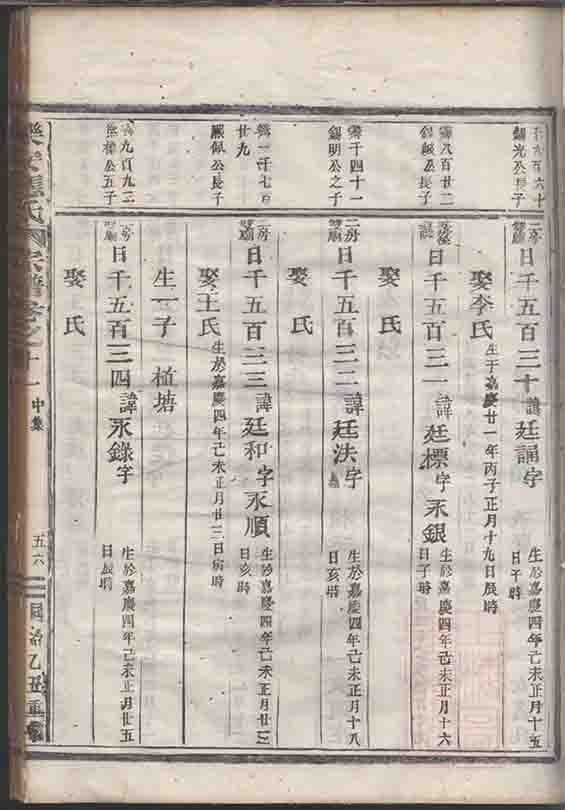 鏞光公長子
二房
日千五百三十諱廷誦字
生於嘉慶四年己未正月十五
日子時
娶李氏
生于嘉慶廿一年丙子正月十九日辰時
霽八百廿二
錫佩公長子
日千五百三一諱廷標字永銀
生於嘉慶四年己未正月十六
日子時
娶氏
霽千四十一
錫明公之子
二房
日千五百三二諱廷法字
生於嘉慶四年己未正月十八
日亥時
娶氏
廿九
佩公長子
二房
日千五百三三諱廷和字永順
生於嘉慶四年己未正月廿三
日亥時
娶王氏
生於嘉慶四年己未正月廿三日寅時
生一子 植塘
九百九二
公五子
房
日千五百三四諱永錄字
生於嘉慶四年己未正月廿五
日辰時
娶氏
氏宗譜卷之十一
中集
五六
同治乙丑重